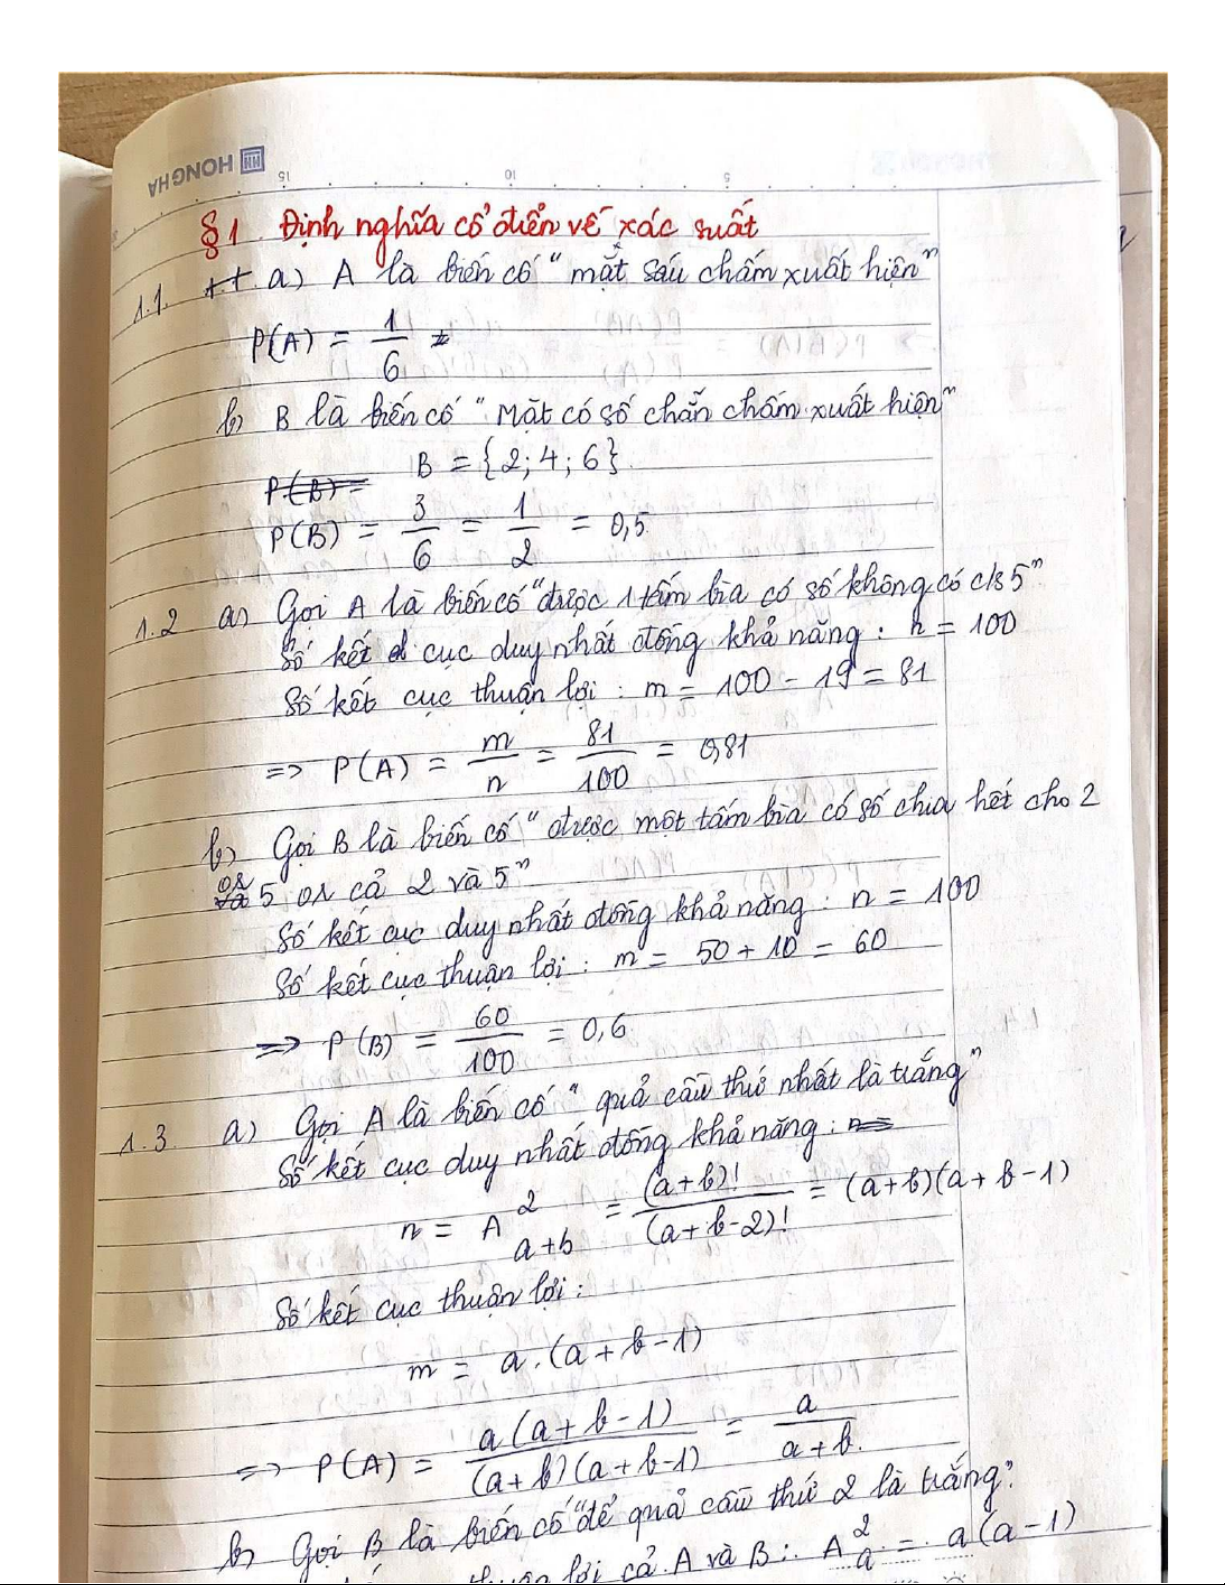 HONG HA
15 10 5
§1. Định nghĩa cổ điển về xác suất
1.1. a) A là biến cố "mặt sáu chấm xuất hiện"
P(A) = 1/6
b) B là biến cố "Mặt có số chẵn chấm xuất hiện"
P(B) = B = {2; 4; 6}
P(B) = 3/6 = 1/2 = 0,5
1.2 a) Gọi A là biến cố "được 1 tấm bìa có số không có c/s 5"
Số kết cục duy nhất đồng khả năng : n = 100
Số kết cục thuận lợi : m = 100 - 19 = 81
=> P(A) = m/n = 81/100 = 0,81
b) Gọi B là biến cố "được một tấm bìa có số chia hết cho 2
or 5 or cả 2 và 5"
Số kết cục duy nhất đồng khả năng : n = 100
Số kết cục thuận lợi : m = 50 + 10 = 60
=> P(B) = 60/100 = 0,6
1.3. a) Gọi A là biến cố "quả cầu thứ nhất là trắng"
Số kết cục duy nhất đồng khả năng : n =
n = A²a+b = (a+b)!/(a+b-2)! = (a+b)(a+b-1)
Số kết cục thuận lợi :
m = a.(a+b-1)
=> P(A) = a(a+b-1)/(a+b)(a+b-1) = a/a+b.
b) Gọi B là biến cố "để quả cầu thứ 2 là trắng".
thuận lợi cả A và B : A²a = a(a-1)